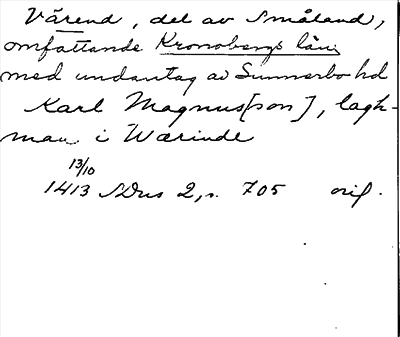 Värend, del av Småland,
omfattande Kronobergs län
med undantag av Sunnerbo hd
Karl Magnus[son], lagh-
man i Wærinde
13/10
1413 SDns 2, s. 705 orig.